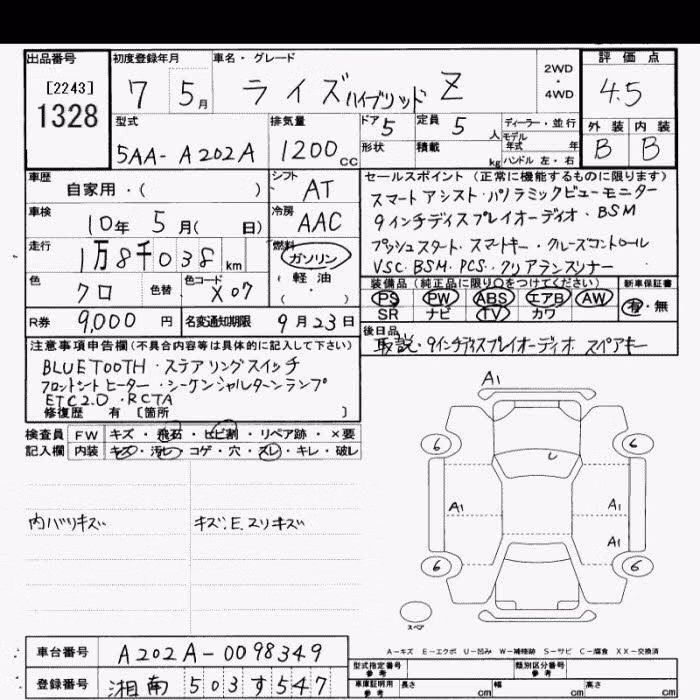 出品番号
[2243]
1328
初度登録年月
7 5月
車名・グレード
ライズ ハイブリッド Z
2WD
・
4WD
評価点
4.5
型式
5AA-A202A
排気量
1200cc
ドア
5
定員
5人
形状
積載
kg
ディーラー・並行
モデル年式 年
ハンドル 左・右
外装 内装
B B
車歴
自家用・( )
シフト
AT
車検
10年 5月( 日)
冷房
AAC
走行
1万8千038km
燃料
ガソリン
軽油
( )
色
クロ
色替
色コード
X07
R券
9,000円
名変通知期限
9月23日
セールスポイント (正常に機能するものに限ります)
スマートアシスト・パノラミックビューモニター
9インチディスプレイオーディオ・BSM
プッシュスタート・スマートキー・クルーズコントロール
VSC・BSM・PCS・クリアランスソナー
装備品(純正品に限り○をつけてください)
PS PW ABS エアB AW
SR ナビ TV カワ
新車保証書
有・無
後日品
取説・9インチディスプレイオーディオ スペアキー
注意事項申告欄(不具合内容等は具体的に記入して下さい)
BLUETOOTH・ステアリングスイッチ
フロントシートヒーター・シーケンシャルターンランプ
ETC2.0・RCTA
修復歴 有 [箇所 ]
検査員 FW キズ・飛石・ヒビ割・リペア跡・×要
記入欄 内装 キズ・汚レ・コゲ・穴・スレ・キレ・破レ
内バリキズ
キズ.E.スリキズ
A1
6 6
A1 A1
A1
6 6
スペア
A-キズ E-エクボ U-凹み W-補修跡 S-サビ C-腐食 XX-交換済
車台番号
A202A-0098349
登録番号
湘南 503す547
型式指定番号
参考
類別区分番号
参考
車庫証明用
参考
長さ cm
幅 cm
高さ cm